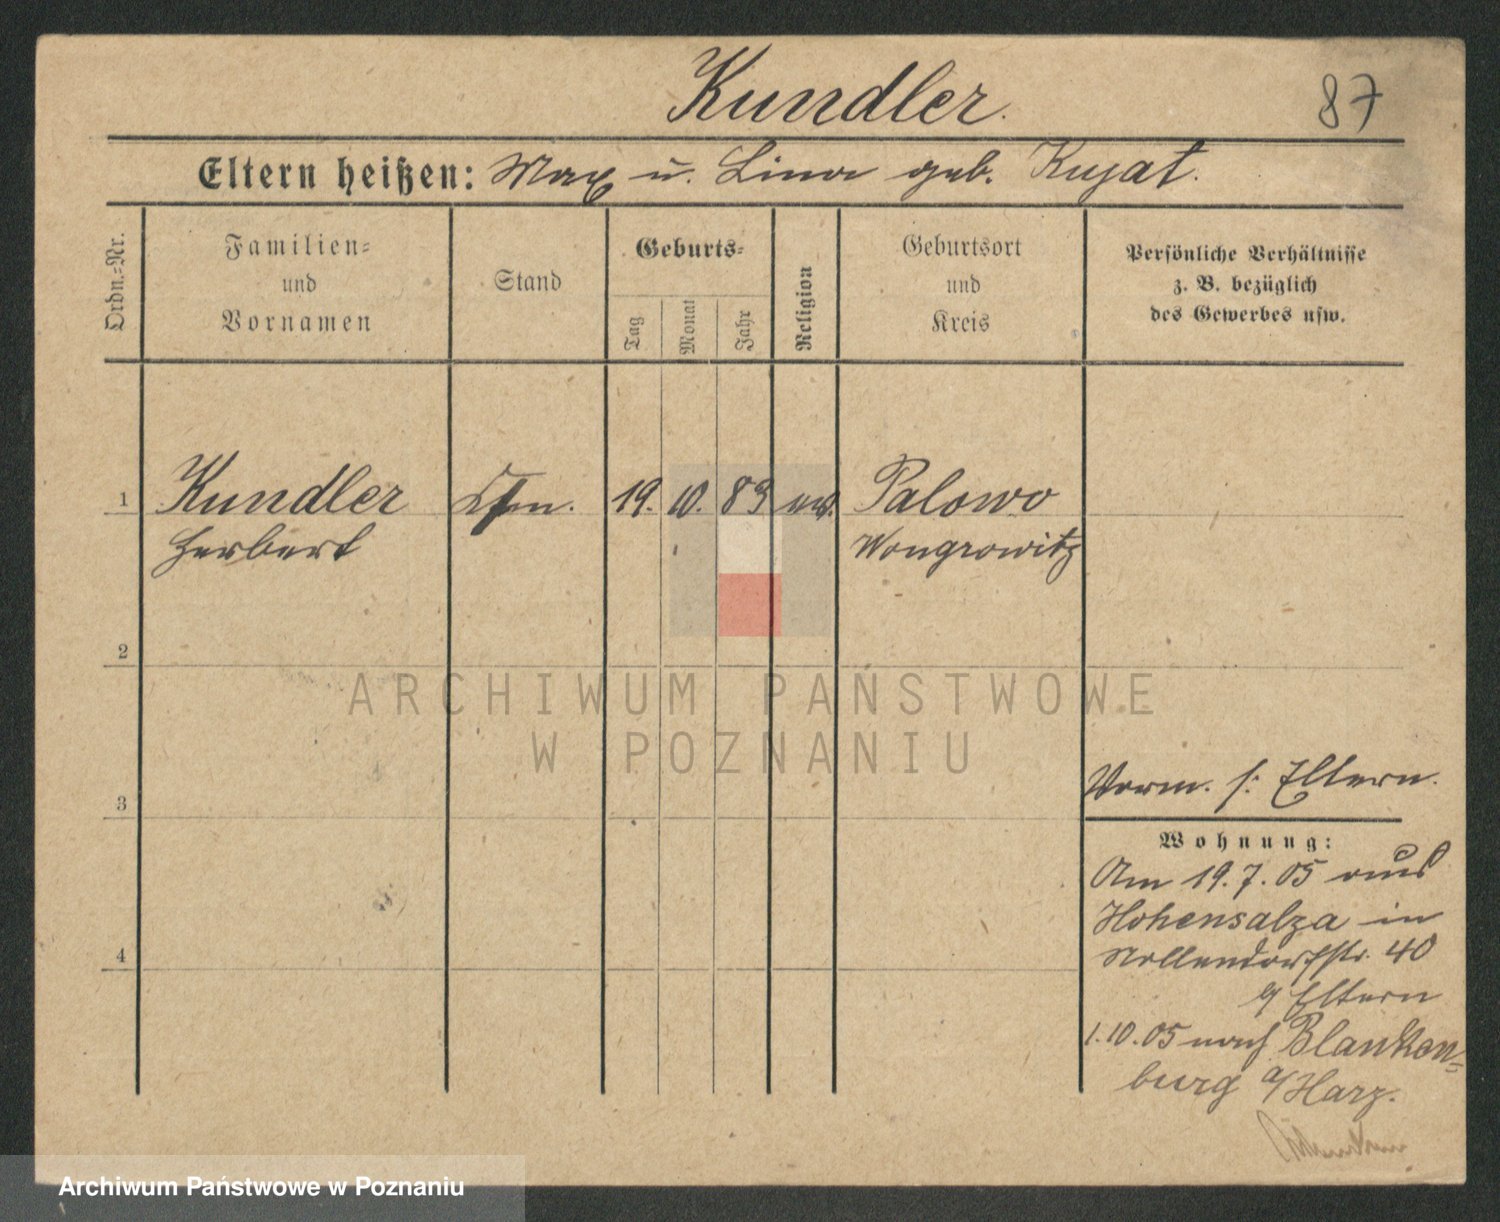 Kundler.
87
Eltern heißen: Max u. Lina geb. Kujat.
Ordn.=Nr.
Familien=
und
Vornamen
Stand
Geburts=
Tag
Monat
Jahr
Religion
Geburtsort
und
Kreis
Persönliche Verhältnisse
z. B. bezüglich
des Gewerbes usw.
1
Kundler
19. 10. 89
Palowo
Herbert
Wongrowitz
2
ARCHIWUM PAŃSTWOWE
W POZNANIU
3
Vorm. s: Eltern.
Wohnung:
Am 19.7.05 aus
Hohensalza in
Nollendorfstr. 40
Eltern
4
1.10.05 nach Blanken=
burg a/Harz.
Archiwum Państwowe w Poznaniu